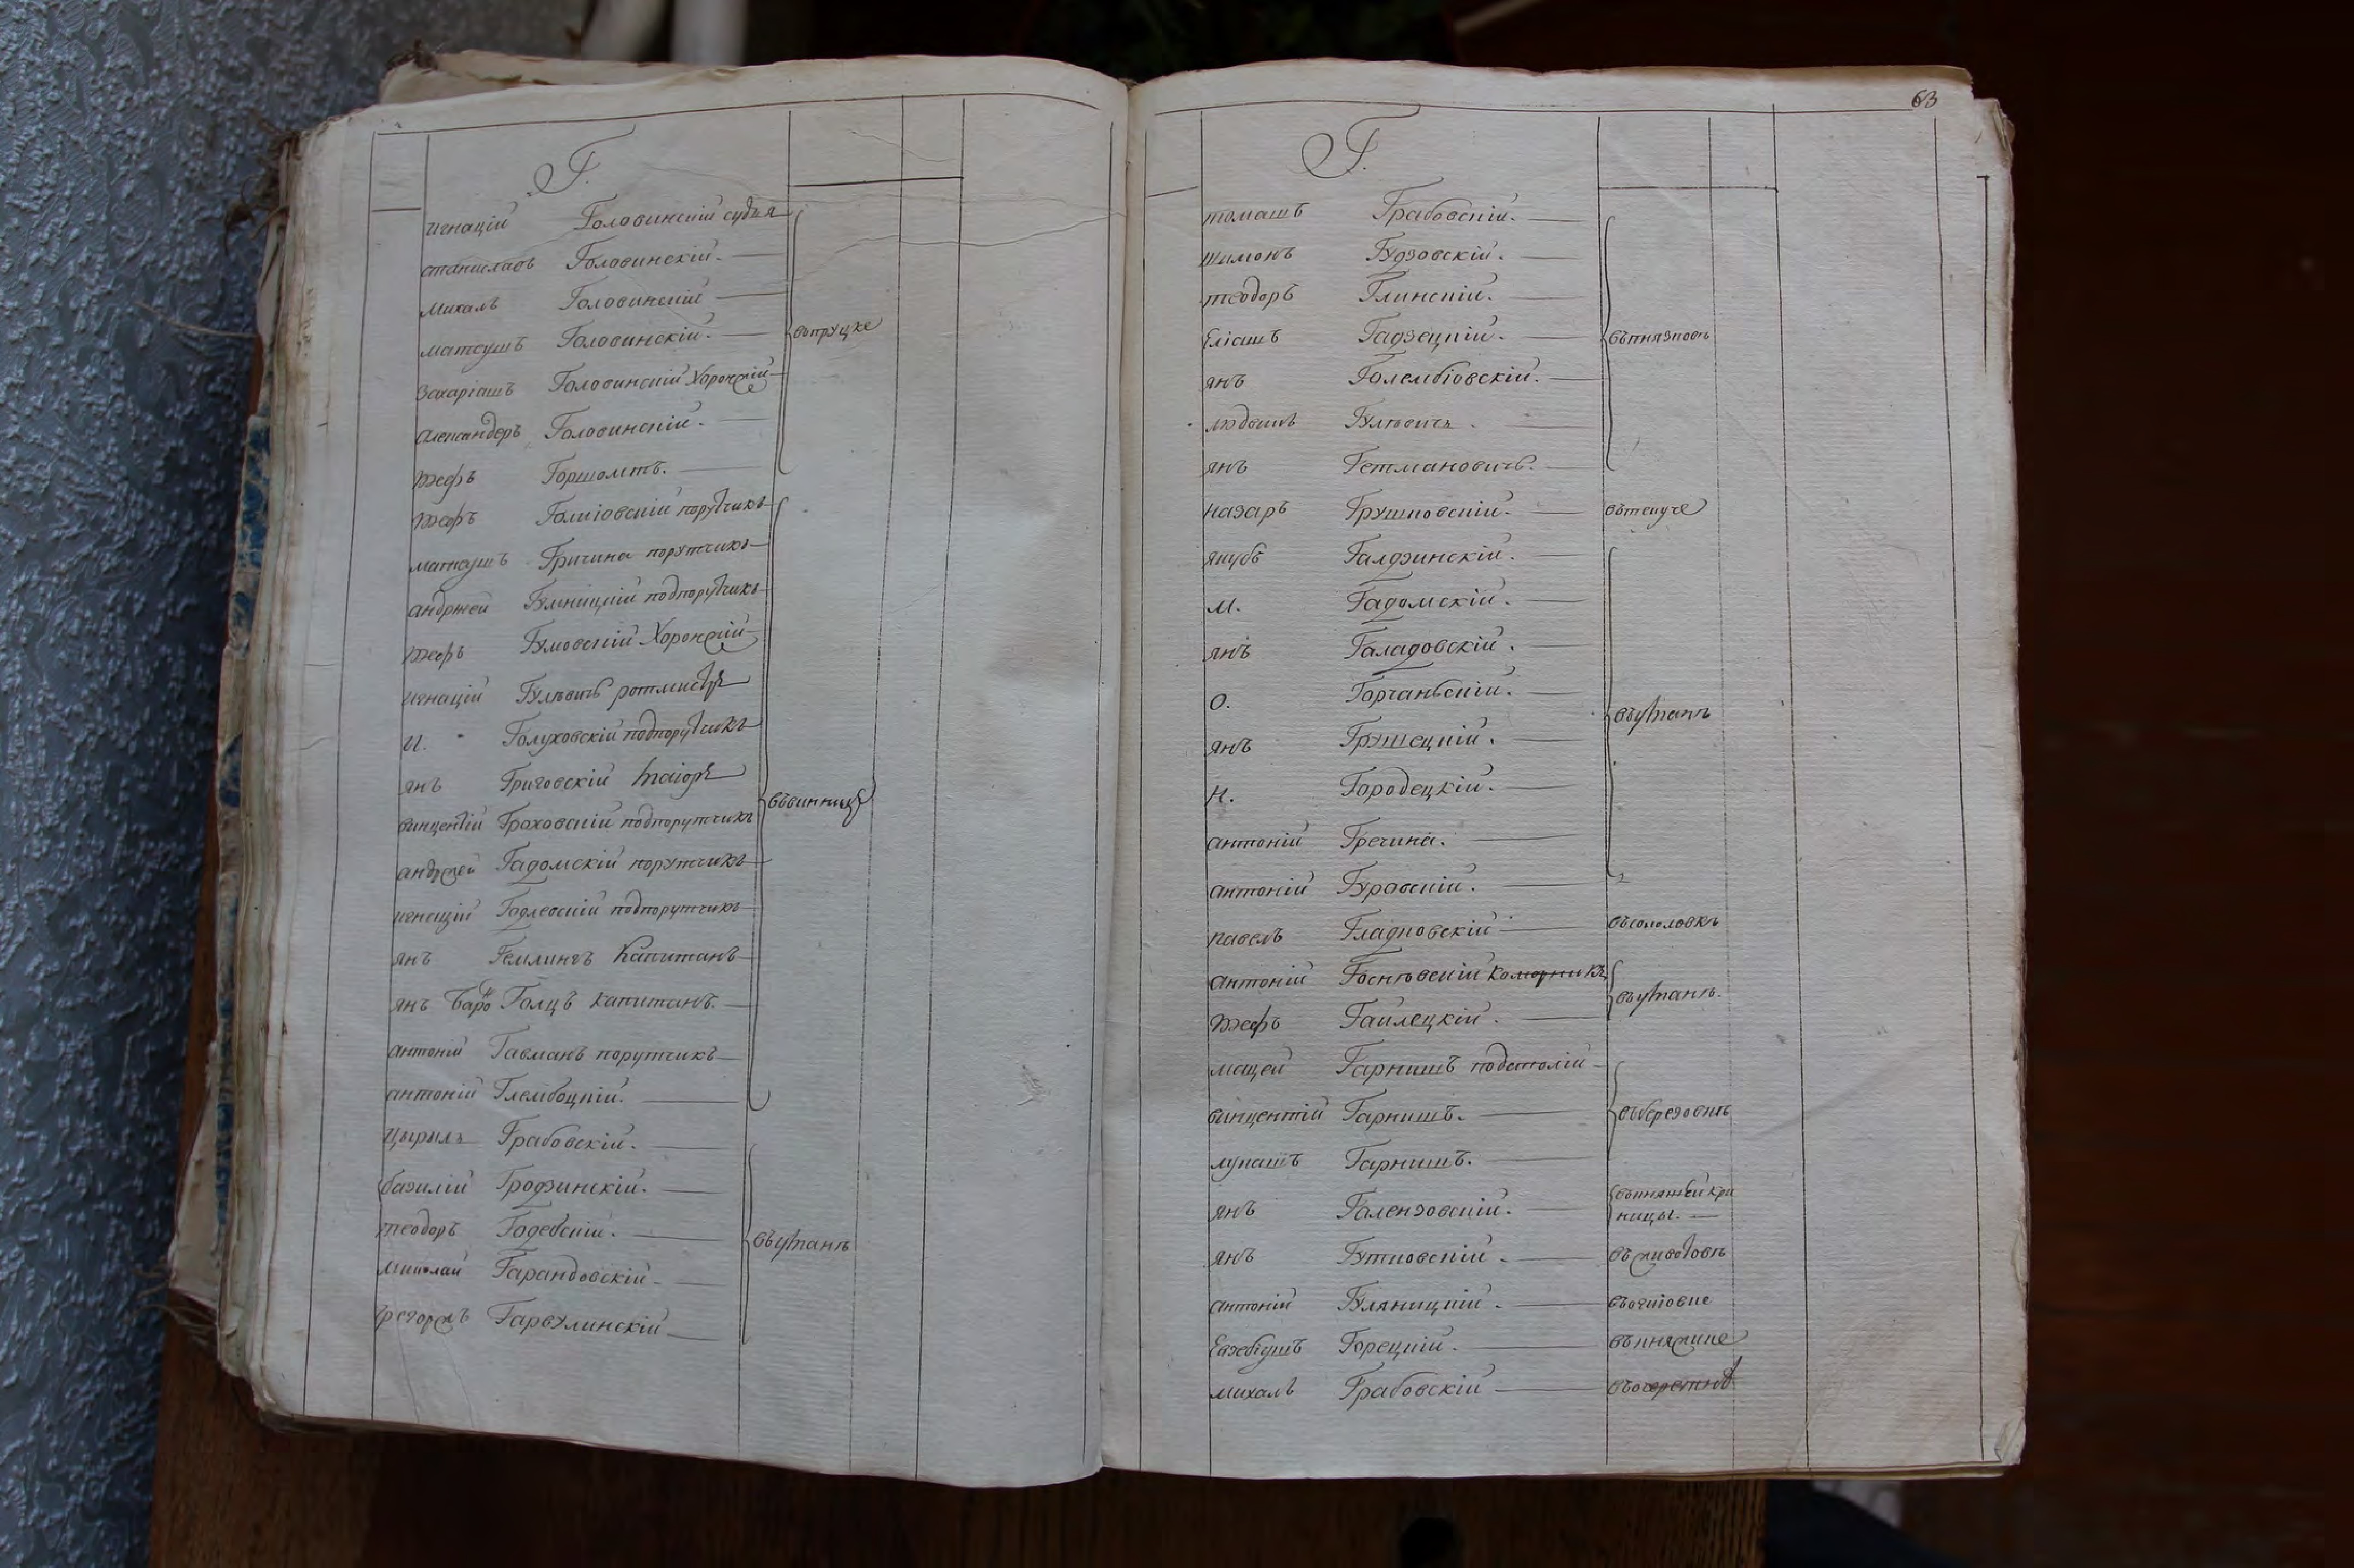 Г.
игнацій Головинскій судья
станиславъ Головинскій.
михалъ Головинскій
матеушъ Головинскій.
въпруцке
Захаріашъ Головинскій Хоронжій
александеръ Головинскій.
юзефъ Горшолтъ.
юзефъ порутчикъ
матеушъ Гричина порутчикъ
андржей подпорутчикъ
юзефъ Гумовскій Хоронжій
игнацій Гулѣвичъ ротмистръ
И. Голуховскій подпорутчикъ
янъ Григовскій маіоръ
въвинницѣ
винцентій Гроховскій подпорутчикъ
андржей Гадомскій порутчикъ
игнацій Годлевскій подпорутчикъ
янъ Гемлингъ Капитанъ
янъ Баро Голцъ капитанъ.
антоній Гавманъ порутчикъ
антоній Глембоцкій.
цырылъ Грабовскій.
базилій Гродзинскій.
теодоръ Годебскій.
въуманѣ
миколай Гарандовскій
Грегоржъ Гарвулинскій
63
Г.
томашъ Грабовскій.
шимонъ Гудзовскій.
теодоръ Глинскій.
Еліашъ Гадзецкій.
янъ Голембіовскій.
людвикъ Гулѣвичъ.
янъ Гетмановичъ.
назаръ Грушковскій.
якубъ Галдзинскій.
М. Гадомскій.
янъ Галадовскій.
О. Горчанскій.
въуманѣ
янъ Грушецкій.
Н. Городецкій.
антоній Гречина.
антоній Гуравскій.
павелъ Гладковскій въсоколовкѣ
антоній Госнѣвскій коморникъ
въуманѣ.
юзефъ Гайлецкій.
мацей Гарнишъ подстолій
винцентій Гарнишъ. въберезовкѣ
лукашъ Гарнишъ.
янъ Галензовскій. въкняжейкри
ницы.
янъ Гутковскій. въживотовѣ
антоній Гуляницкій.
Евзебіушъ Горецкій. въкняжике
михалъ Грабовскій